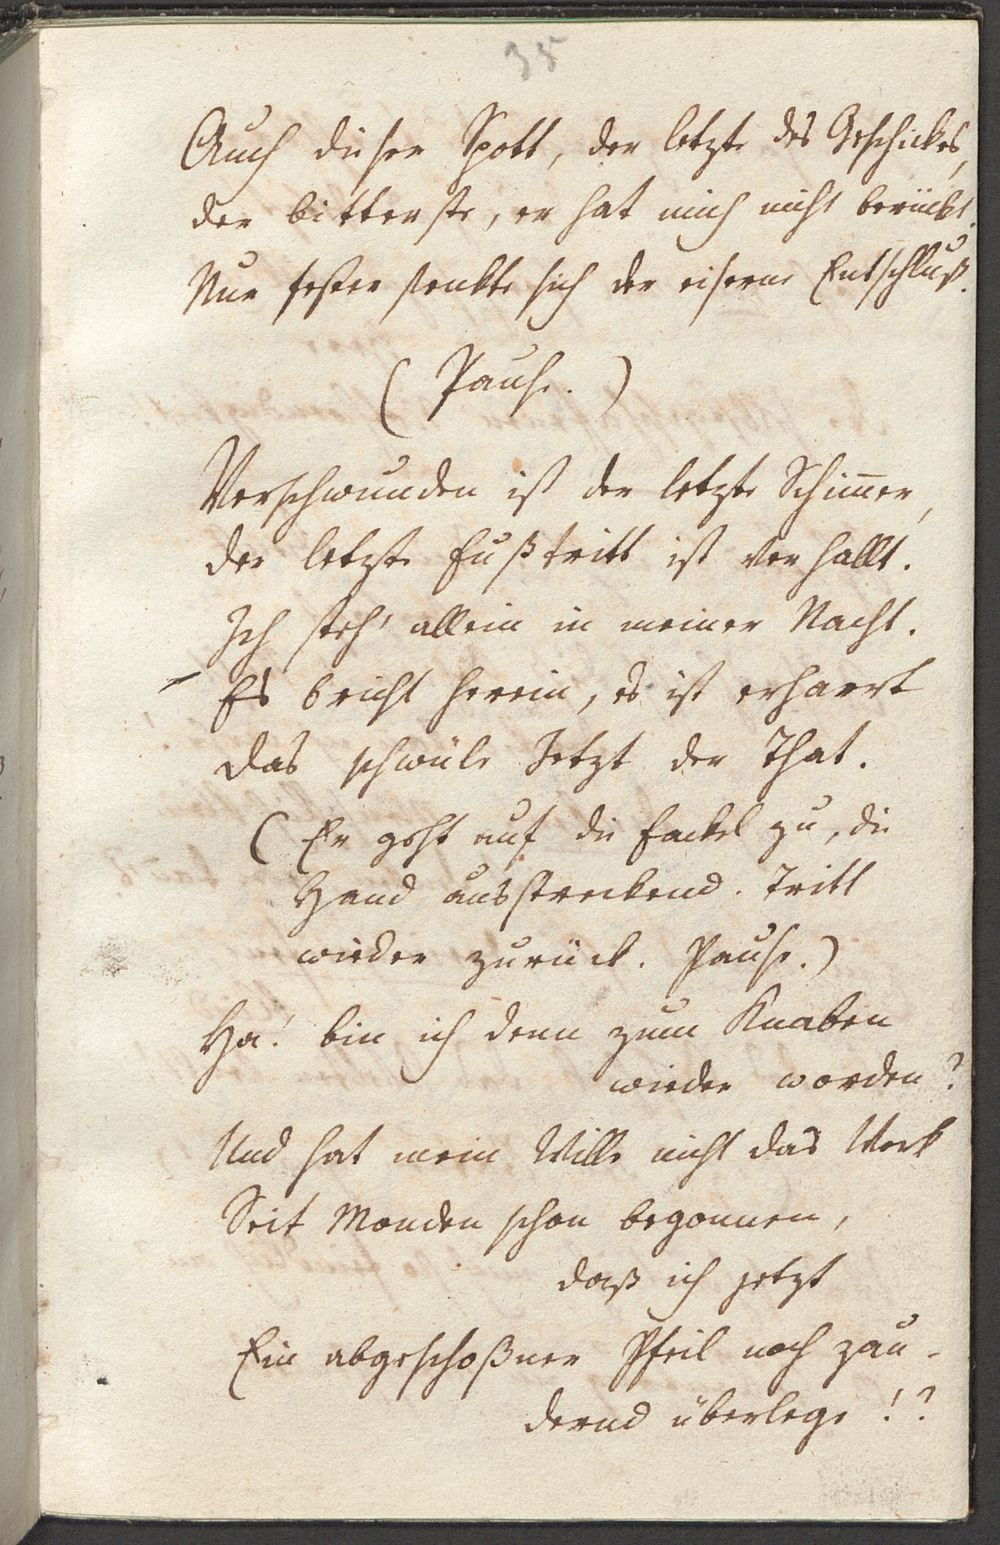 35
Auch dieser Spott, der letzte des Geschickes,
der bitterste, er hat mich nicht berückt.
Nur fester senkte sich der eiserne Entschluß.
( Pause. )
Verschwunden ist der letzte Schim̅er,
der letzte Fußtritt ist verhallt.
Ich steh' allein in meiner Nacht.
Es bricht herein, es ist erharrt
das schwüle Jetzt der That.
( Er geht auf die Fackel zu, die
Hand ausstreckend. Tritt
wieder zurück. Pause.)
Ha! bin ich denn zum Knaben
wieder worden?
Und hat mein Wille nicht das Werk
Seit Monden schon begonnen,
daß ich jetzt
Ein abgeschoßner Pfeil noch zau-
dernd überlege !?